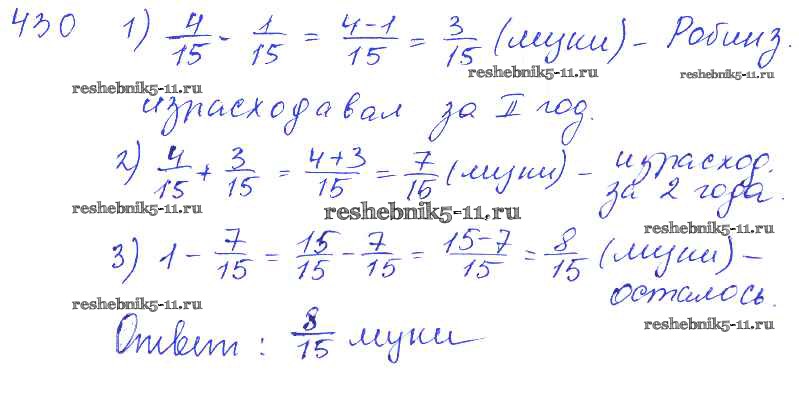 430 1) 4/15 - 1/15 = (4-1)/15 = 3/15 (муки) - Робинз.
reshebnik5-11.ru reshebnik5-11.ru reshebnik5-11.ru
израсходавал за II год.
2) 4/15 + 3/15 = (4+3)/15 = 7/15 (муки) - израсход.
за 2 года.
reshebnik5-11.ru reshebnik5-11.ru reshebnik5-11.ru
3) 1 - 7/15 = 15/15 - 7/15 = (15-7)/15 = 8/15 (муки) -
осталось.
reshebnik5-11.ru reshebnik5-11.ru
Ответ: 8/15 муки